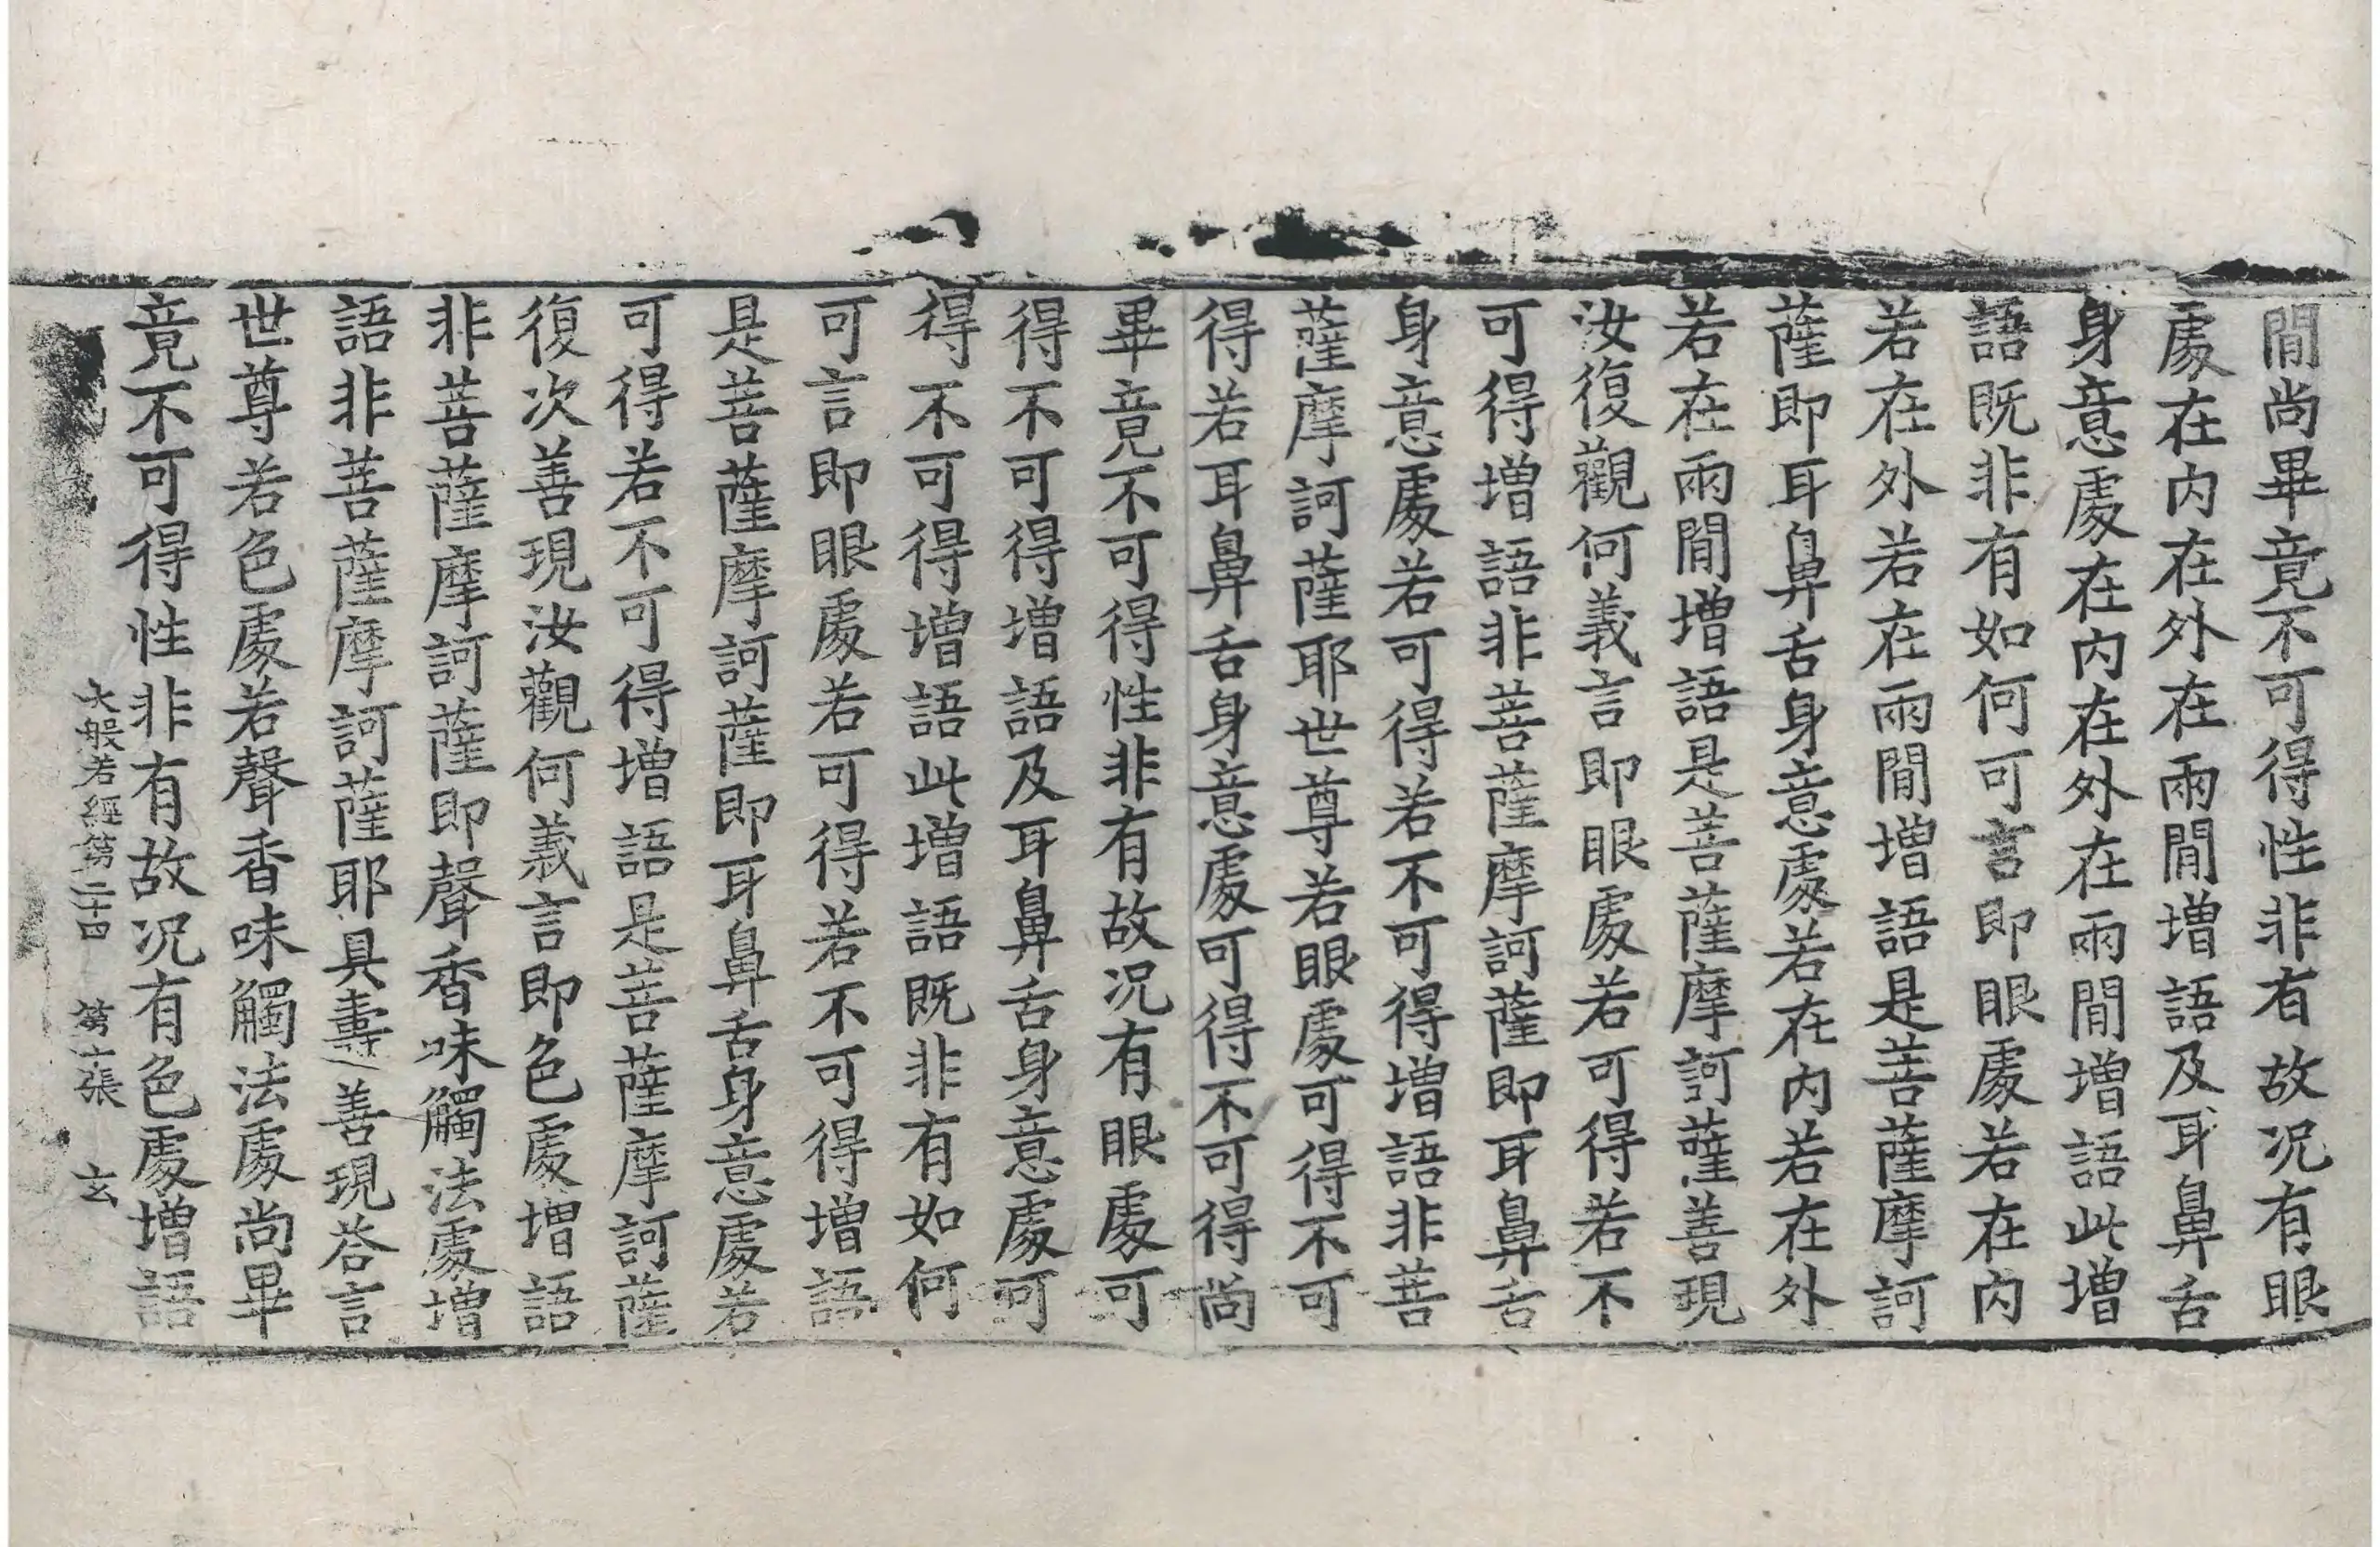 閒尚畢竟不可得性非有故况有眼
處在內在外在兩閒增語及耳鼻舌
身意處在內在外在兩閒增語此增
語既非有如何可言即眼處若在內
若在外若在兩閒增語是菩薩摩訶
薩即耳鼻舌身意處若在內若在外
若在兩閒增語是菩薩摩訶薩善現
汝復觀何義言即眼處若可得若不
可得增語非菩薩摩訶薩即耳鼻舌
身意處若可得若不可得增語非菩
薩摩訶薩耶世尊若眼處可得不可
得若耳鼻舌身意處可得不可得尚
畢竟不可得性非有故况有眼處可
得不可得增語及耳鼻舌身意處可
得不可得增語此增語既非有如何
可言即眼處若可得若不可得增語
是菩薩摩訶薩即耳鼻舌身意處若
可得若不可得增語是菩薩摩訶薩
復次善現汝觀何義言即色處增語
非菩薩摩訶薩即聲香味觸法處增
語非菩薩摩訶薩耶具壽善現荅言
世尊若色處若聲香味觸法處尚畢
竟不可得性非有故况有色處增語
大般若經第二十四 第張 玄